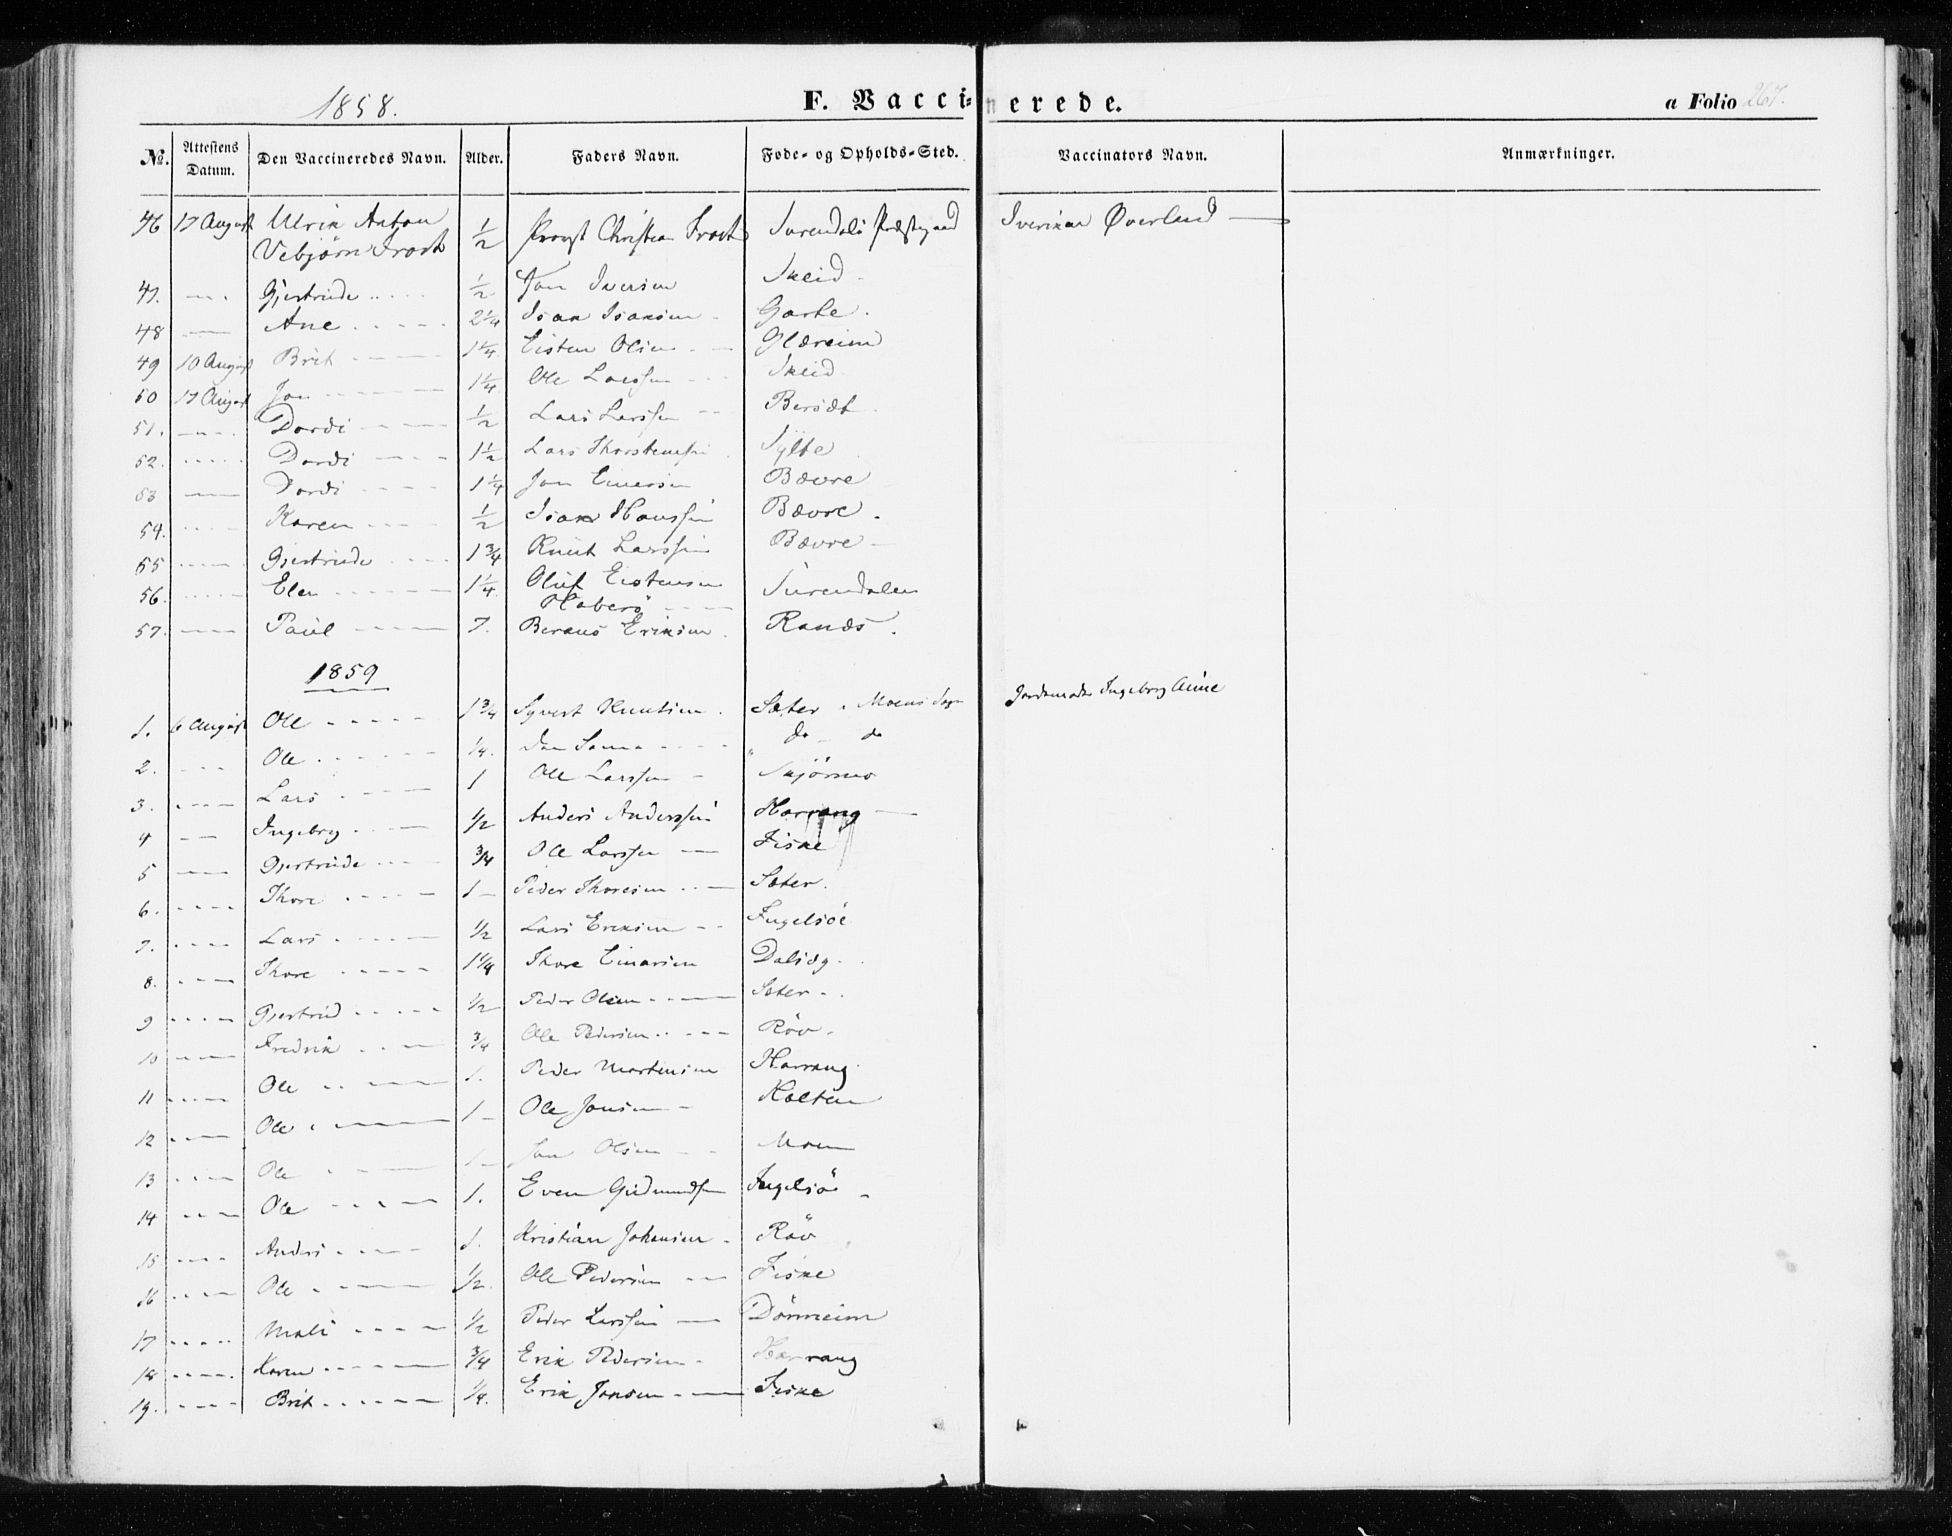 1858.
F. Vaccinerede.
a Folio 267.
No. Attestens Datum. Den Vaccineredes Navn. Alder. Faders Navn. Føde- og Opholds-Sted. Vaccinators Navn. Anmærkninger.
46 17 August Ulrik Anton Vebjørn Frost 1/2 Provst Christian Frost Surendals Præstegaard Iverikar Øverland
47. Gjertrude 1/2 Jon Iversen Skeid
48 Ane 2 1/4 Isak Isaksen Garte.
49 10 August Brit 1 1/4 Eisten Olsen Glæreim
50 17 August Jon 1 1/4 Ole Larssen Skeid
51. Dordi 1/2 Lars Larssen
52. Dordi 1 1/2 Lars Thorstensen Sylte
53 Dordi 1 1/4 Jon Einersen Bævre
54. Karen 1/2 Isak Hanssen Bævre.
55 Gjertrude 1 3/4 Knut Larssen Bævre
56. Elen 1 1/4 Oluf Eistensen Surendalen
Haberö
57. Paul 7. Beraus Eriksen. Randes.
1859
1. 6 August Ole 1 3/4 Syvert Knutsen. Sæter. Moens Sogn Jordemoder Ingeborg Aune
2. Ole 1/4. Den Samme do do
3. Lars 1 Ole Larssen
4 Ingebrg 1/2 Anders Anderssen Harrang
5 Gjertrude 3/4 Ole Larssen Fiske
6. Thore 1 Peder Thoresen Sæter.
7. Lars 1/2 Lars Eriksen Ingelsöe
8. Thore 1 1/4 Thore Einarsen Dalsæg.
9 Gjertrud 1/2 Peder Olsen Sæter.
10 Fredrik 3/4 Ole Pedersen Röv.
11 Ole 1. Peder Mortensen Harrang.
12 Ole 1 Ole Jonsen Holten
13 Ole 1 Jon Olsen Moen
14 Ole 1. Even Gudmundsen Ingelsö
15 Anders 1. Kristian Johansen Röv
16 Ole 1/2. Ole Pedersen Fiske
17 Mali 1/2 Peder Larssen Dönneim
18 Karen 3/4 Erik Pedersen Harrang
19. Brit 1/4. Erik Jonsen Fiske